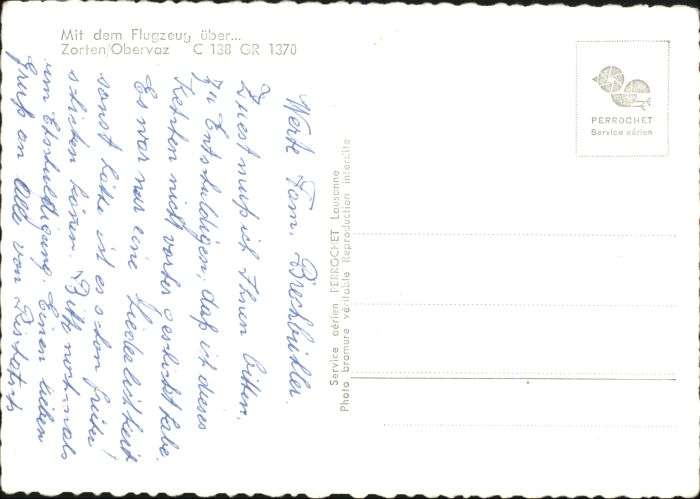 Mit dem Flugzeug über...
Zorten/Obervaz C 138 GR 1370
PERROCHET
Service aérien
Service aérien PERROCHET Lausanne
Photo bromure véritable Reproduction interdite
Werte Fam. Brechbühler.
Zuest muß ich Ihnen bitten,
zu Entschuldigen, daß ich dieses
Kertten nicht vorher geschickt habe.
Es war nur eine Liederlichkeit
sonst hätte ich es schon früher
schicken können. Bitte nochmals
um Entschuldigung. Einen lieben
Gruß an Alle von